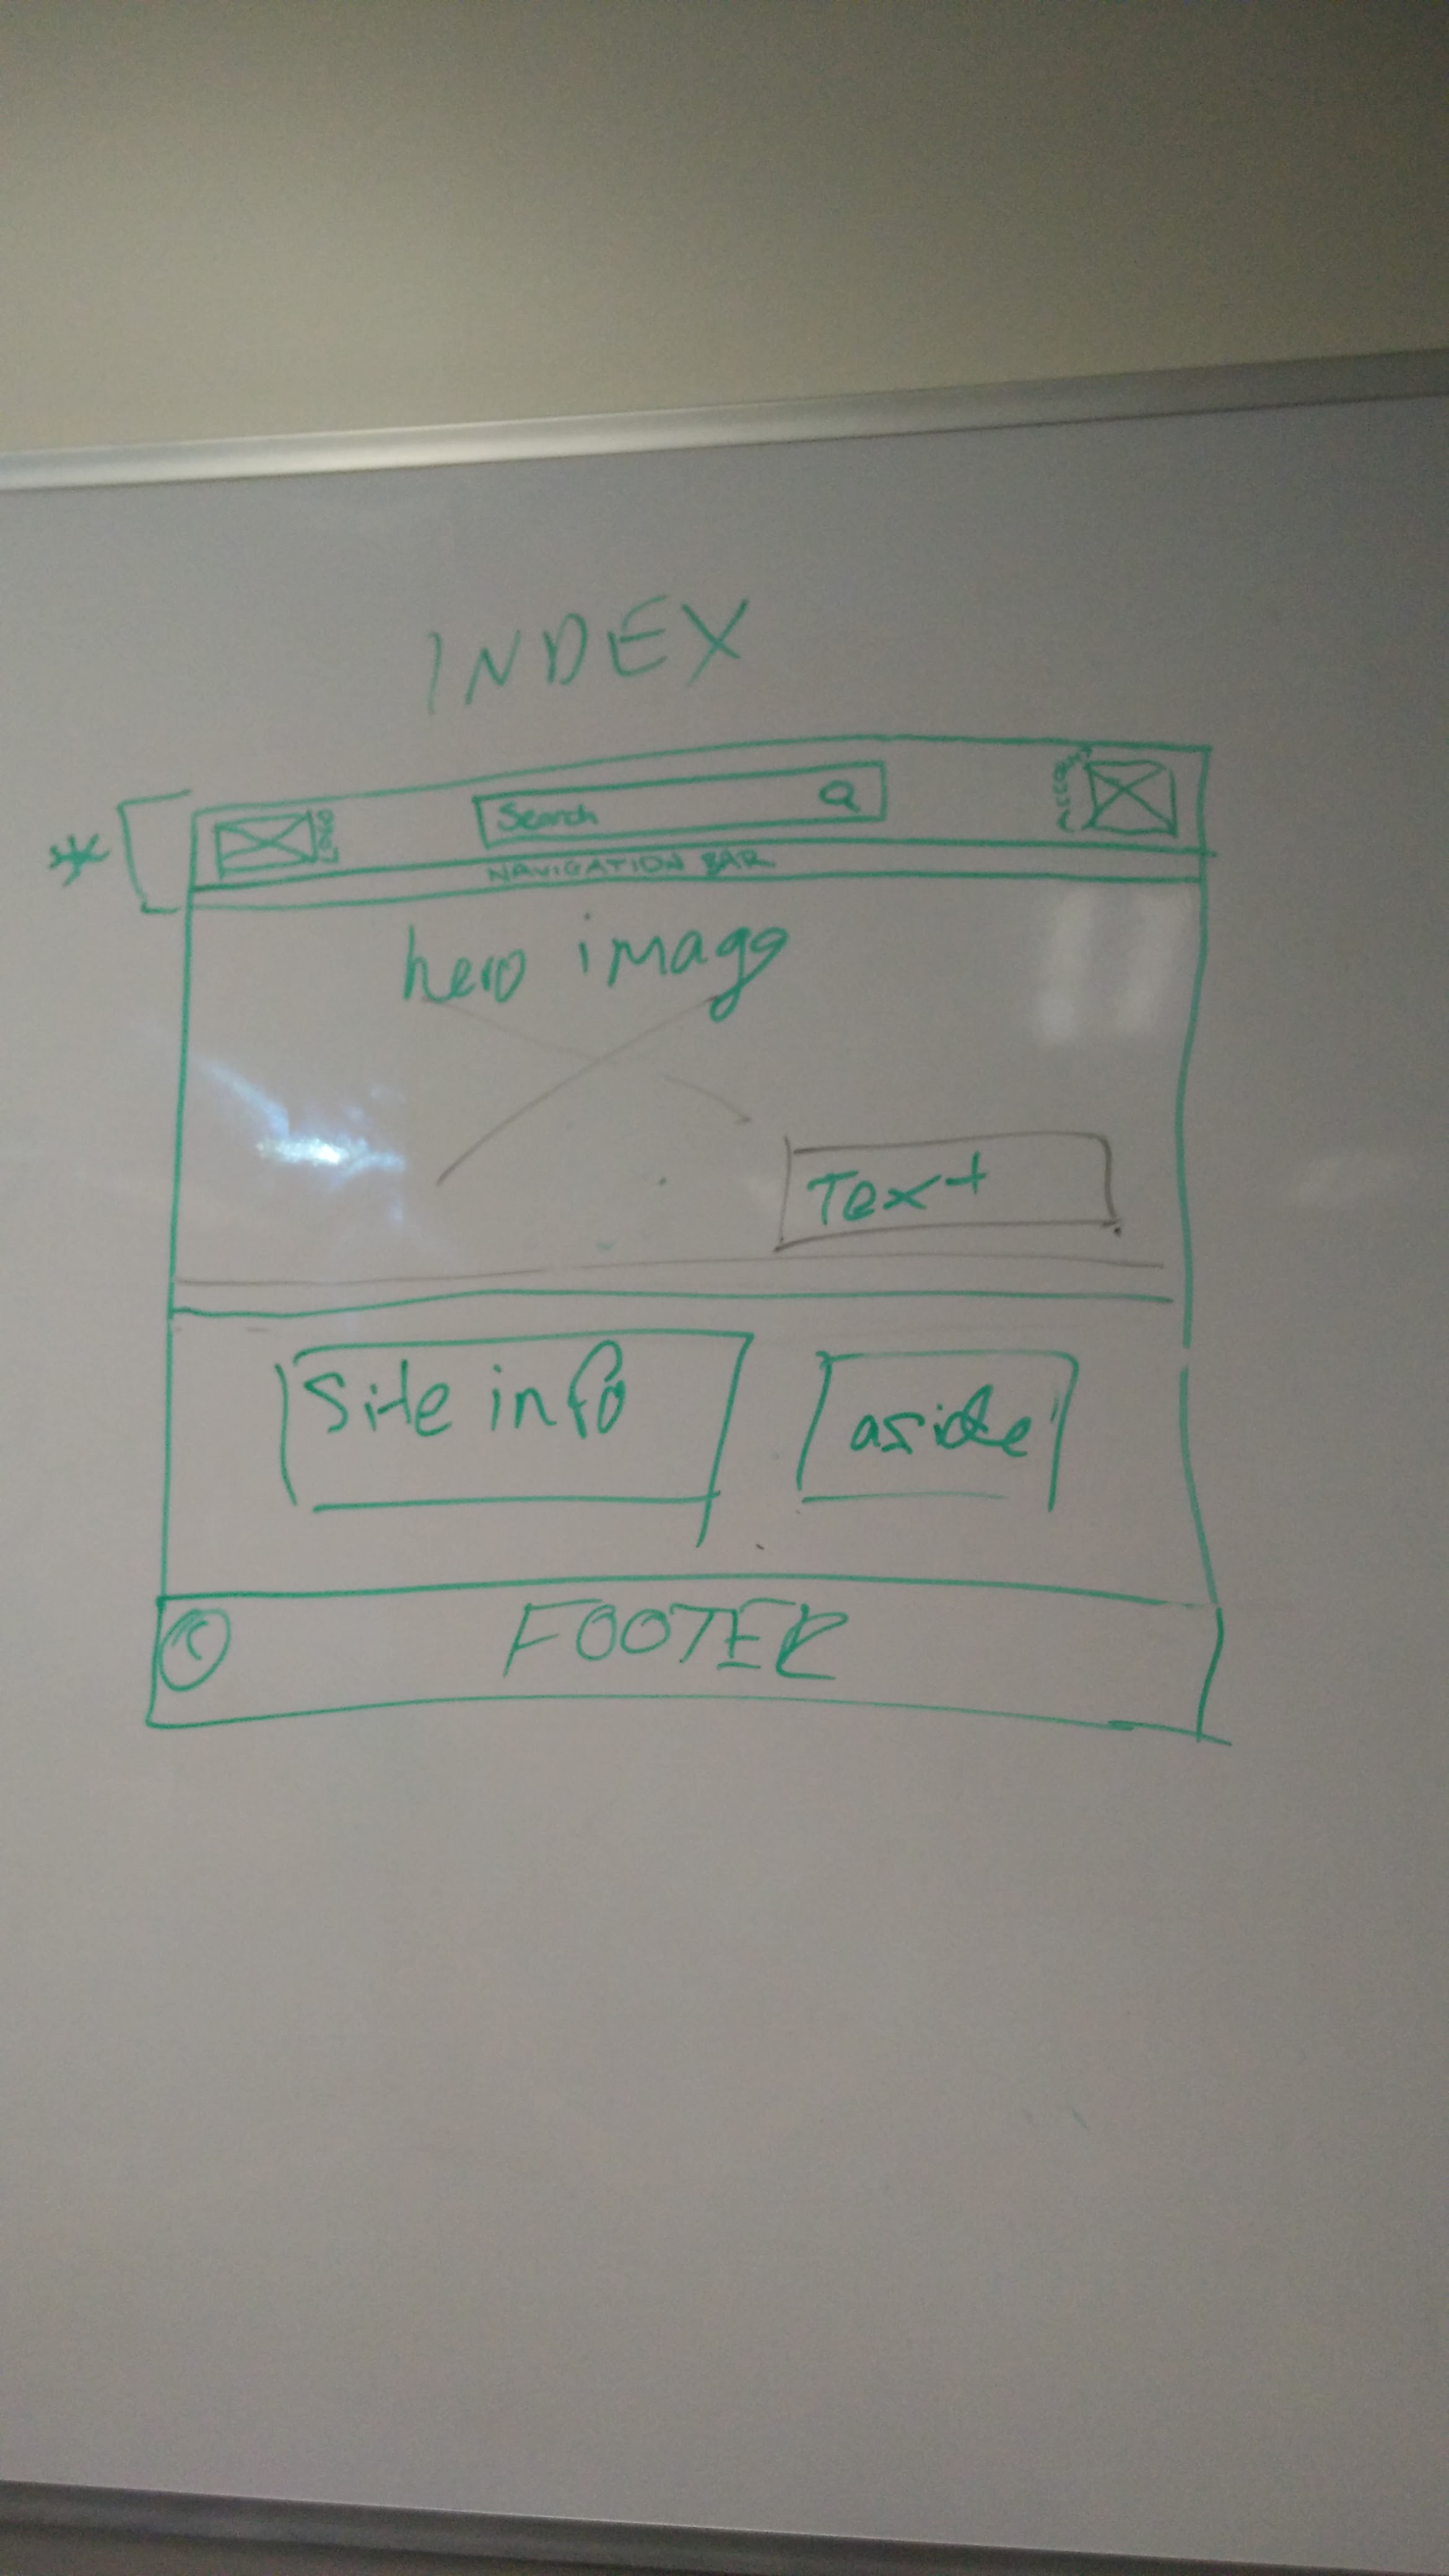 INDEX
Logo
Search
Account
NAVIGATION BAR
hero image
Text
Site info
aside
FOOTER